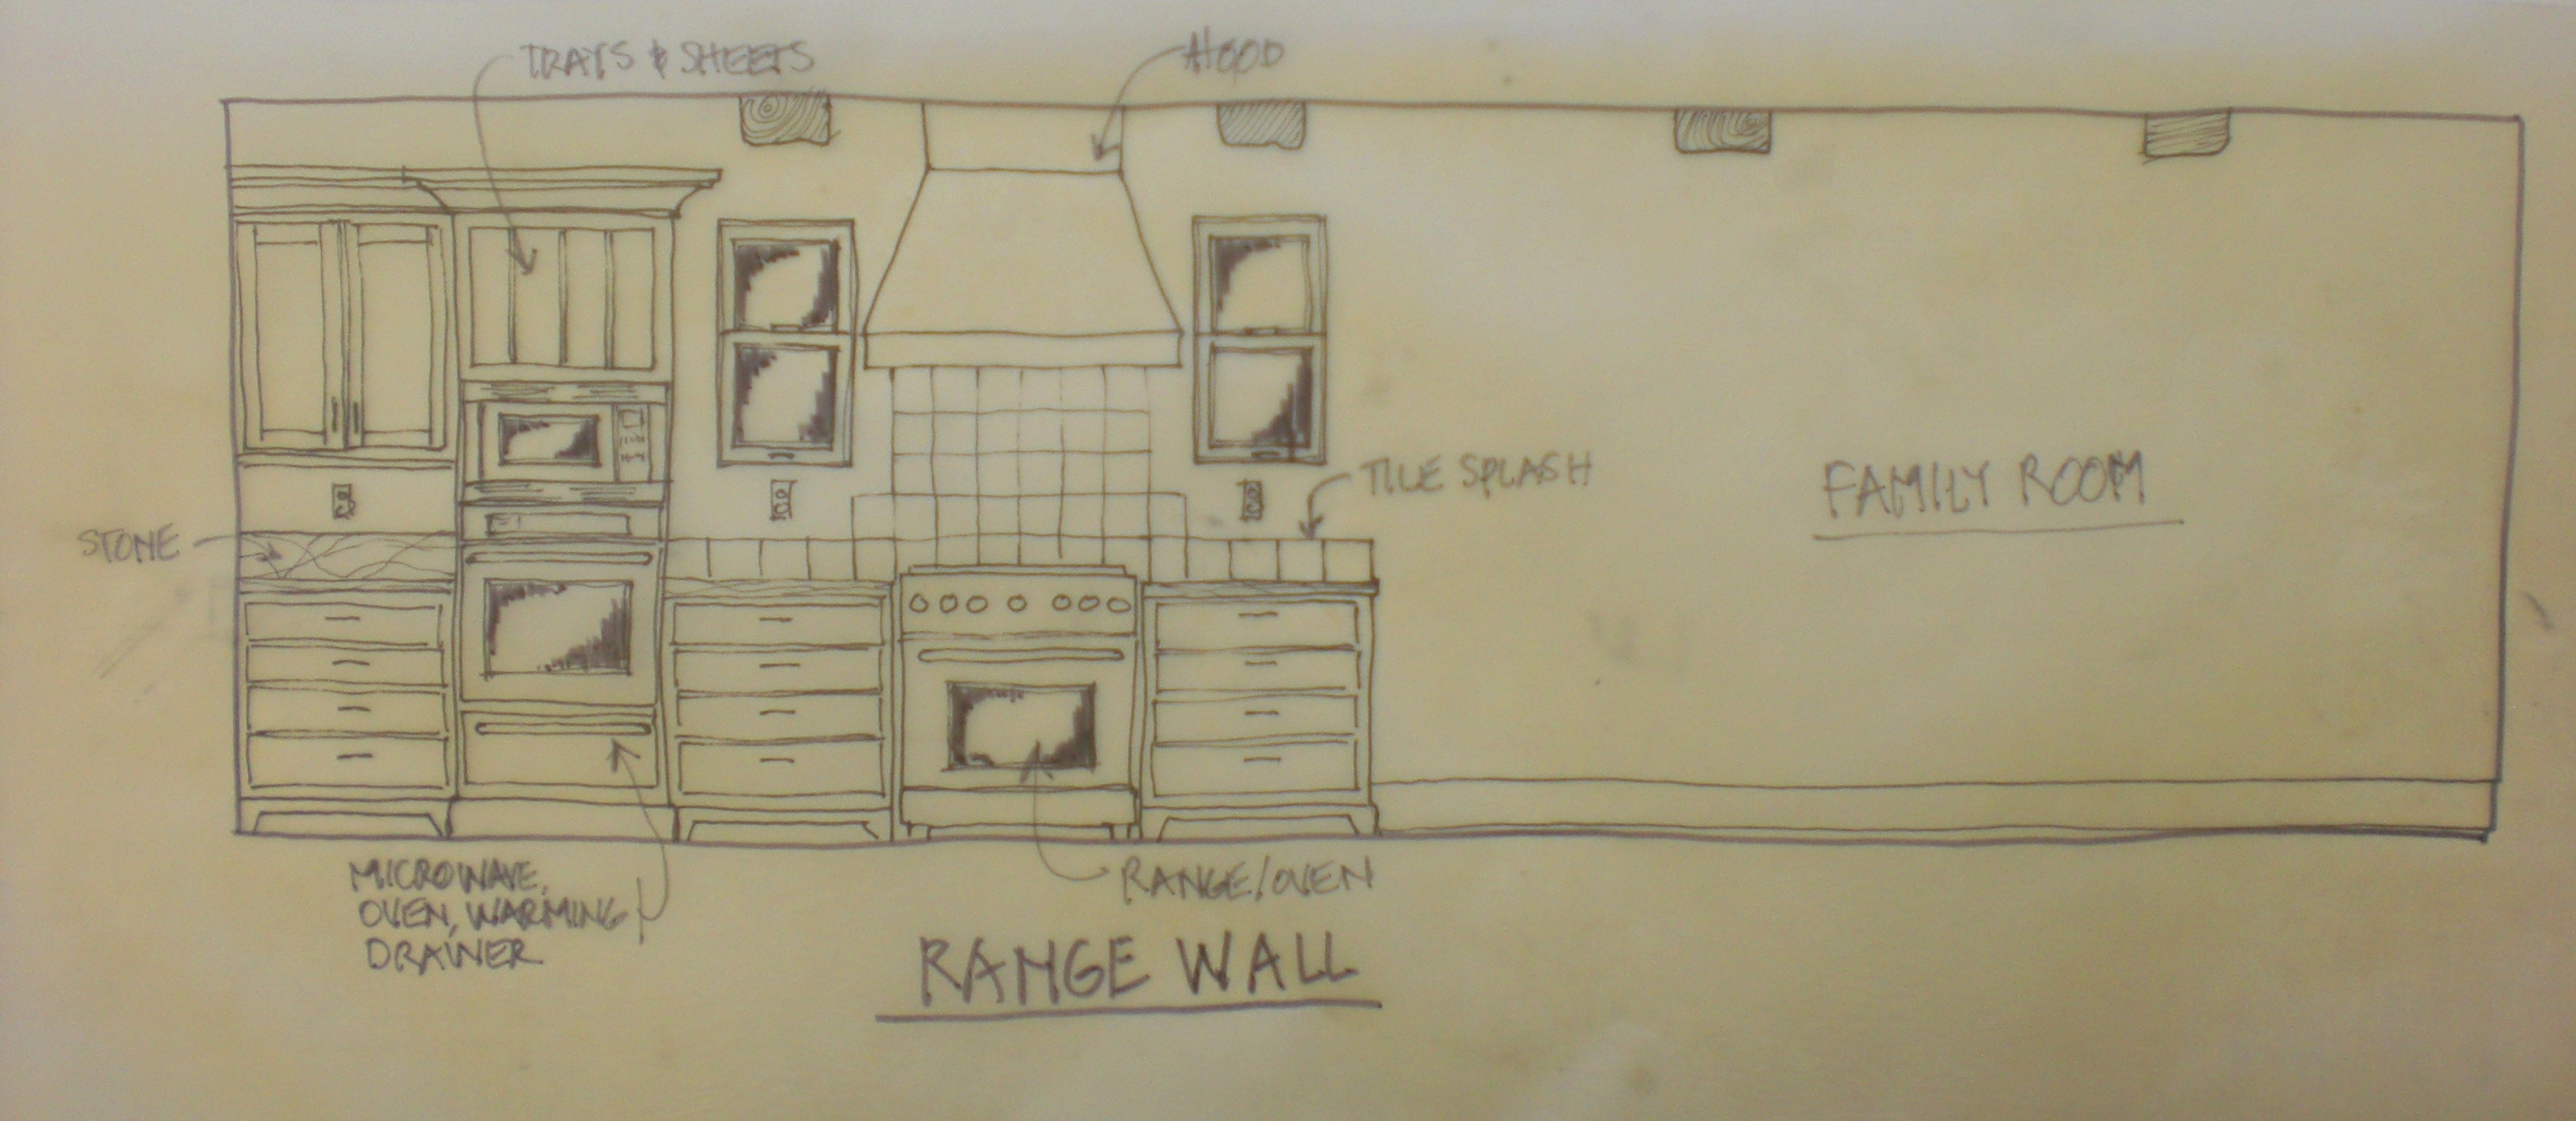 TRAYS & SHEETS
HOOD
TILE SPLASH
FAMILY ROOM
STONE
MICROWAVE,
OVEN, WARMING
DRAWER
RANGE/OVEN
RANGE WALL